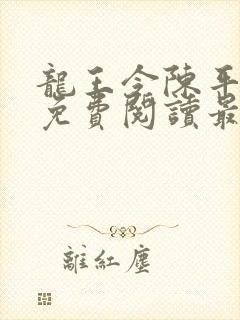 龍王令陳平
免費閱讀最
離紅塵